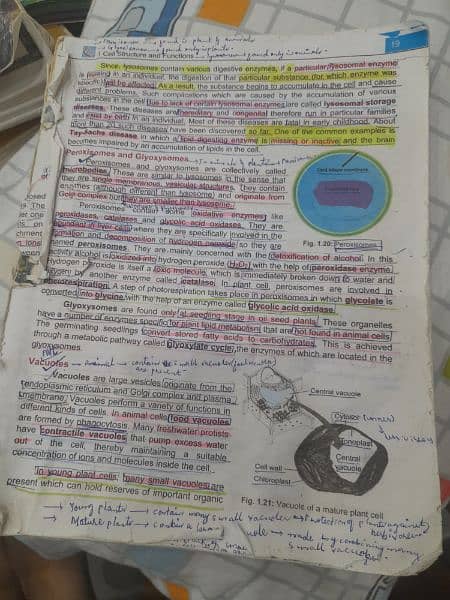 Peroxisomes - found in plants & animals
Glyoxysomes - found only in plants.
1 Cell Structure and Functions
Lysosomes - found only in animals.
19
Since, lysosomes contain various digestive enzymes, if a particular lysosomal enzyme
is missing in an individual, the digestion of that particular substance (for which enzyme was
specific) will be affected. As a result, the substance begins to accumulate in the cell and cause
different problems. Such complications which are caused by the accumulation of various
substances in the cell due to lack of certain lysosomal enzymes are called lysosomal storage
diseases. These diseases are hereditary and congenital therefore run in particular families
and exist by birth in an individual. Most of these diseases are fatal in early childhood. About
more than 20 such diseases have been discovered so far. One of the common examples is
Tay-Sachs disease in which a lipid digesting enzyme is missing or inactive and the brain
becomes impaired by an accumulation of lipids in the cell.
Peroxisomes and Glyoxysomes
Peroxisomes and glyoxysomes are collectively called
microbodies. These are similar to lysosomes in the sense that
they are single membranous, vesicular structures. They contain
enzymes (although different from lysosome) and originate from
Golgi complex but they are smaller than lysosome.
Peroxisomes contain some oxidative enzymes like
peroxidases, catalases and glycolic acid oxidases. They are
abundant in liver cells where they are specifically involved in the
formation and decomposition of hydrogen peroxide so they are
named peroxisomes. They are mainly concerned with the detoxification of alcohol. In this
activity alcohol is oxidized into hydrogen peroxide (H₂O₂) with the help of peroxidase enzyme.
Hydrogen peroxide is itself a toxic molecule, which is immediately broken down to water and
oxygen by another enzyme called catalase. In plant cell, peroxisomes are involved in
photorespiration. A step of photorespiration takes place in peroxisomes in which glycolate is
converted into glycine with the help of an enzyme called glycolic acid oxidase.
Fig. 1.20: Peroxisomes
Glyoxysomes are found only at seedling stage in oil seed plants. These organelles
have a number of enzymes specific for plant lipid metabolism that are not found in animal cells.
The germinating seedlings convert stored fatty acids to carbohydrates. This is achieved
through a metabolic pathway called glyoxylate cycle, the enzymes of which are located in the
glyoxysomes.
Vacuoles
animal - contain small vacuoles
are present
Vacuoles are large vesicles originate from the
endoplasmic reticulum and Golgi complex and plasma
membrane. Vacuoles perform a variety of functions in
different kinds of cells. In animal cells food vacuoles
are formed by phagocytosis. Many freshwater protists
have contractile vacuoles that pump excess water
out of the cell, thereby maintaining a suitable
concentration of ions and molecules inside the cell.
In young plant cells, many small vacuoles are
present which can hold reserves of important organic
Central vacuole
Cytosol
Tonoplast
Central
vacuole
Cell wall
Chloroplast
Fig. 1.21: Vacuole of a mature plant cell
→ Young plants → contain many small vacuoles → protection of plant against
herbivores
→ Mature plants → contain a large
vacuole → made by combining many
small vacuoles